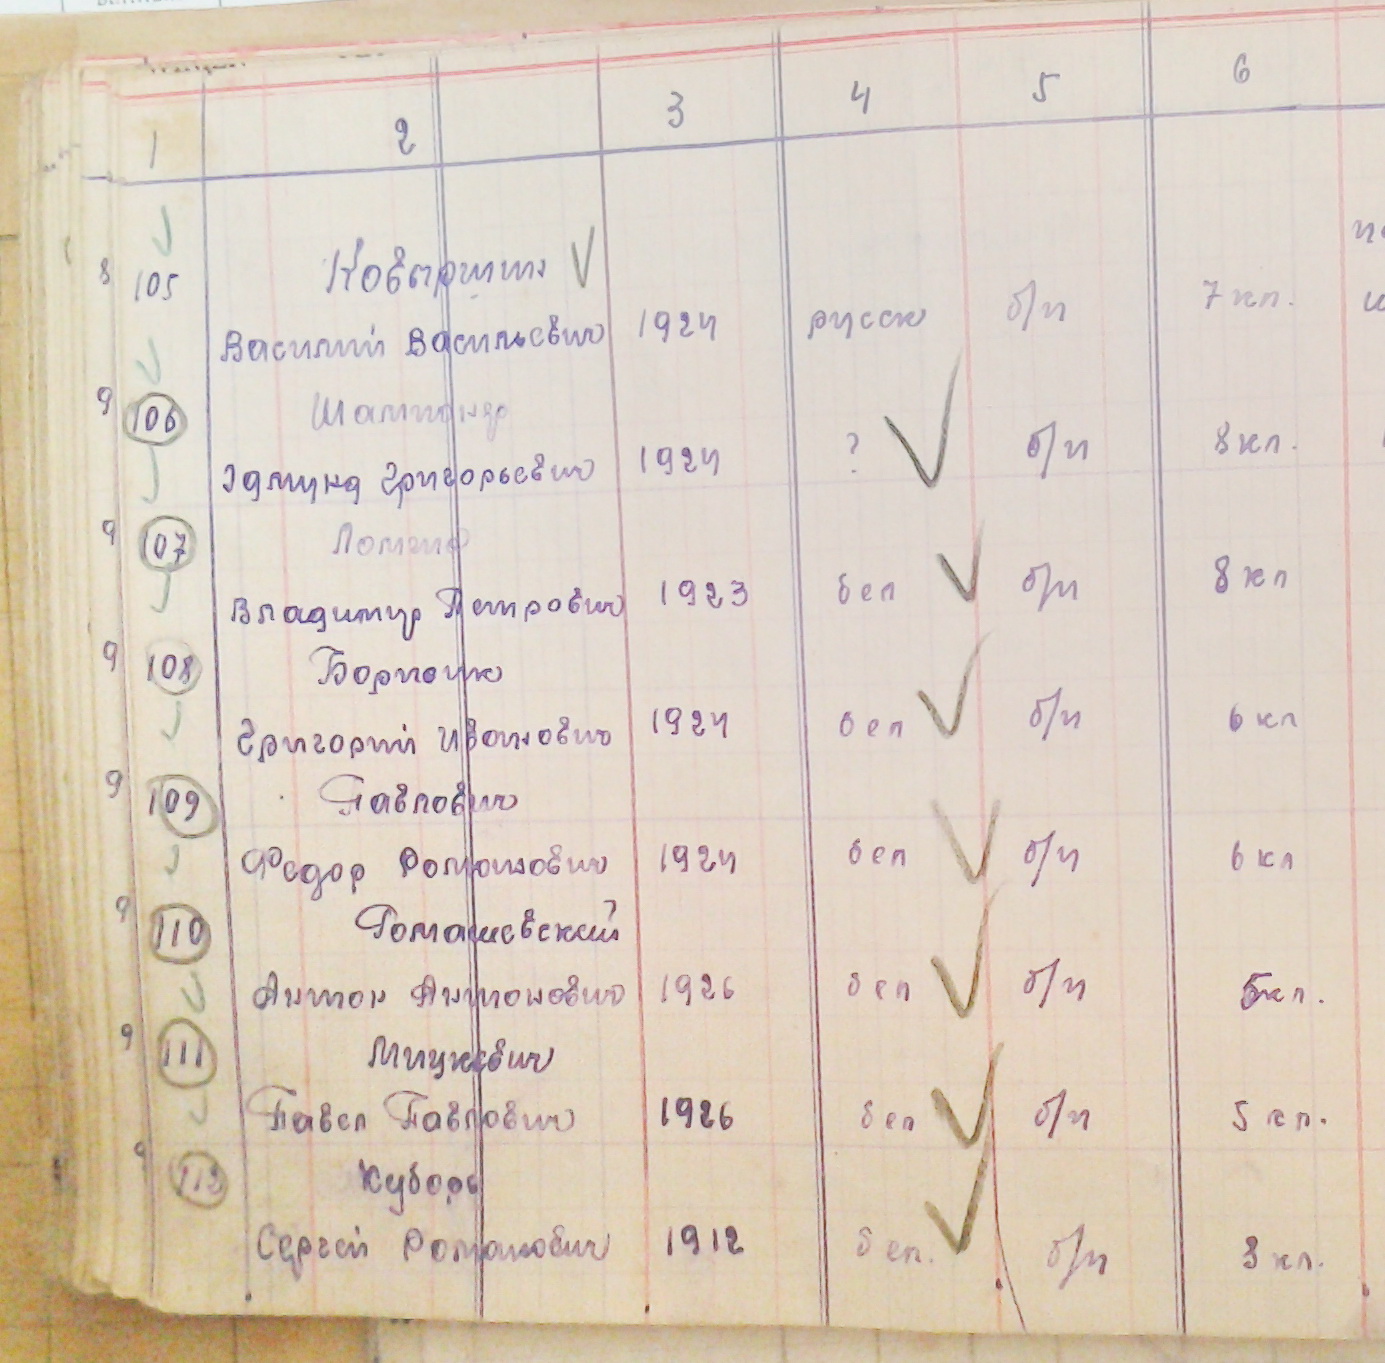 1 2 3 4 5 6
8 105 Ковыршин
Василий Васильевич 1924 русск б/п 7 кл.
9 106
Эдмунд Григорьевич 1924 ? б/п 8 кл.
9 107
Владимир Петрович 1923 бел б/п 8 кл
9 108 Борисик
Григорий Иванович 1924 бел б/п 6 кл
9 109 Павлович
Федор Романович 1924 бел б/п 6 кл
9 110 Томашевский
Антон Антонович 1926 бел б/п 5 кл.
9 111 Мицкевич
Павел Павлович 1926 бел б/п 5 кл.
9 112
Сергей Романович 1912 бел. б/п 3 кл.